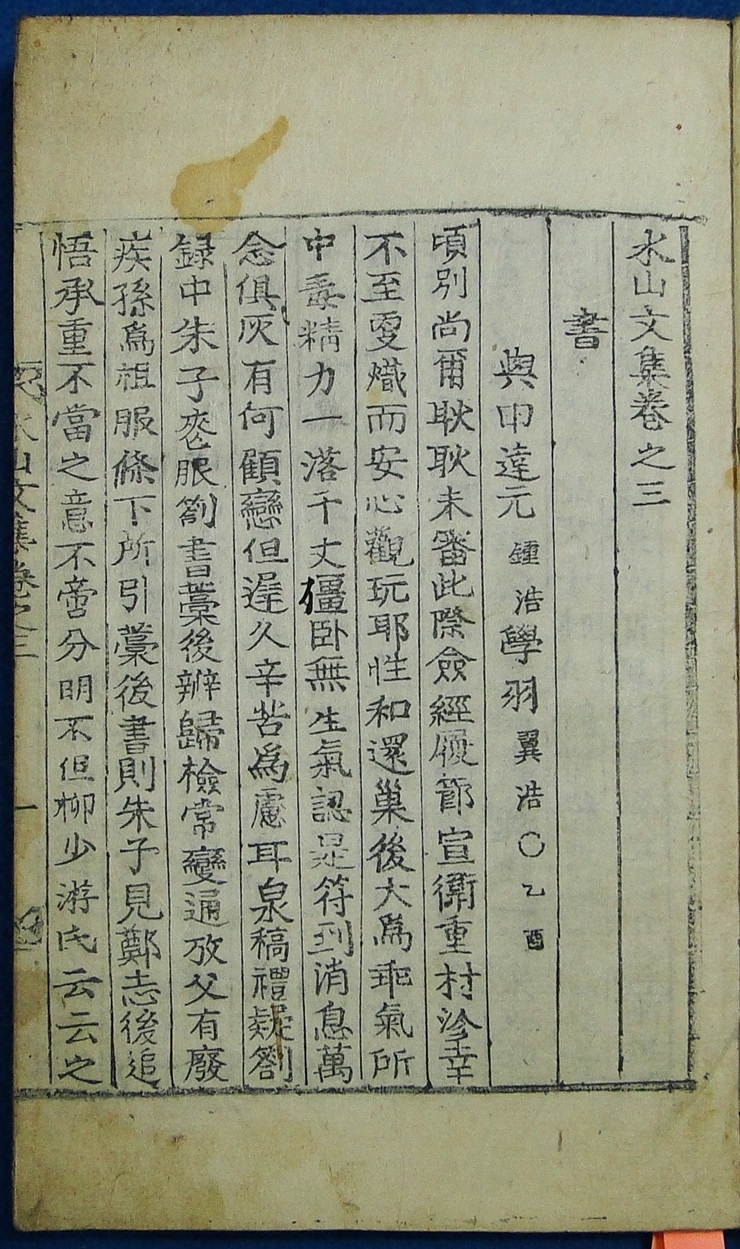 水山文集卷之三
書
與申達元鍾浩學羽翼浩○乙酉
頃別尚爾耿耿未審此際僉經履節宣衛重村沴幸
不至更熾而安心觀玩耶性和還巢後大爲乖氣所
中毒精力一落千丈殭卧無生氣認是符到消息萬
念俱灰有何顧戀但遲久辛苦爲慮耳泉稿禮疑劄
録中朱子喪服劄書藁後辨歸檢常變通攷父有廢
疾孫爲祖服條下所引藁後書則朱子見鄭志後追
悟承重不當之意不啻分明不但柳少游氏云云之
水山文集卷之三 一